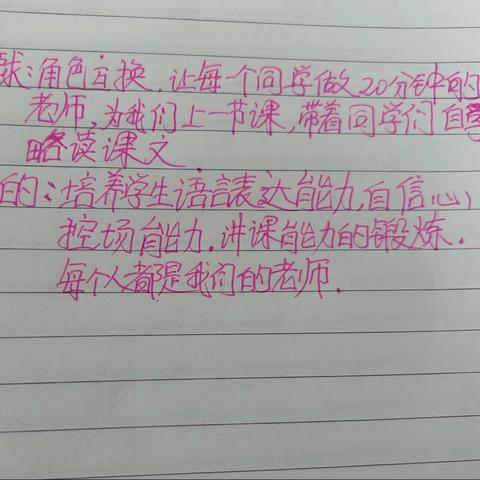 角色互换,让每一个同学做20分钟的
老师,为我们上一节课,带着同学们自学
略读课文.
的:培养学生语言表达能力,自信心,
控场能力.讲课能力的锻炼.
每个人都是我们的老师.